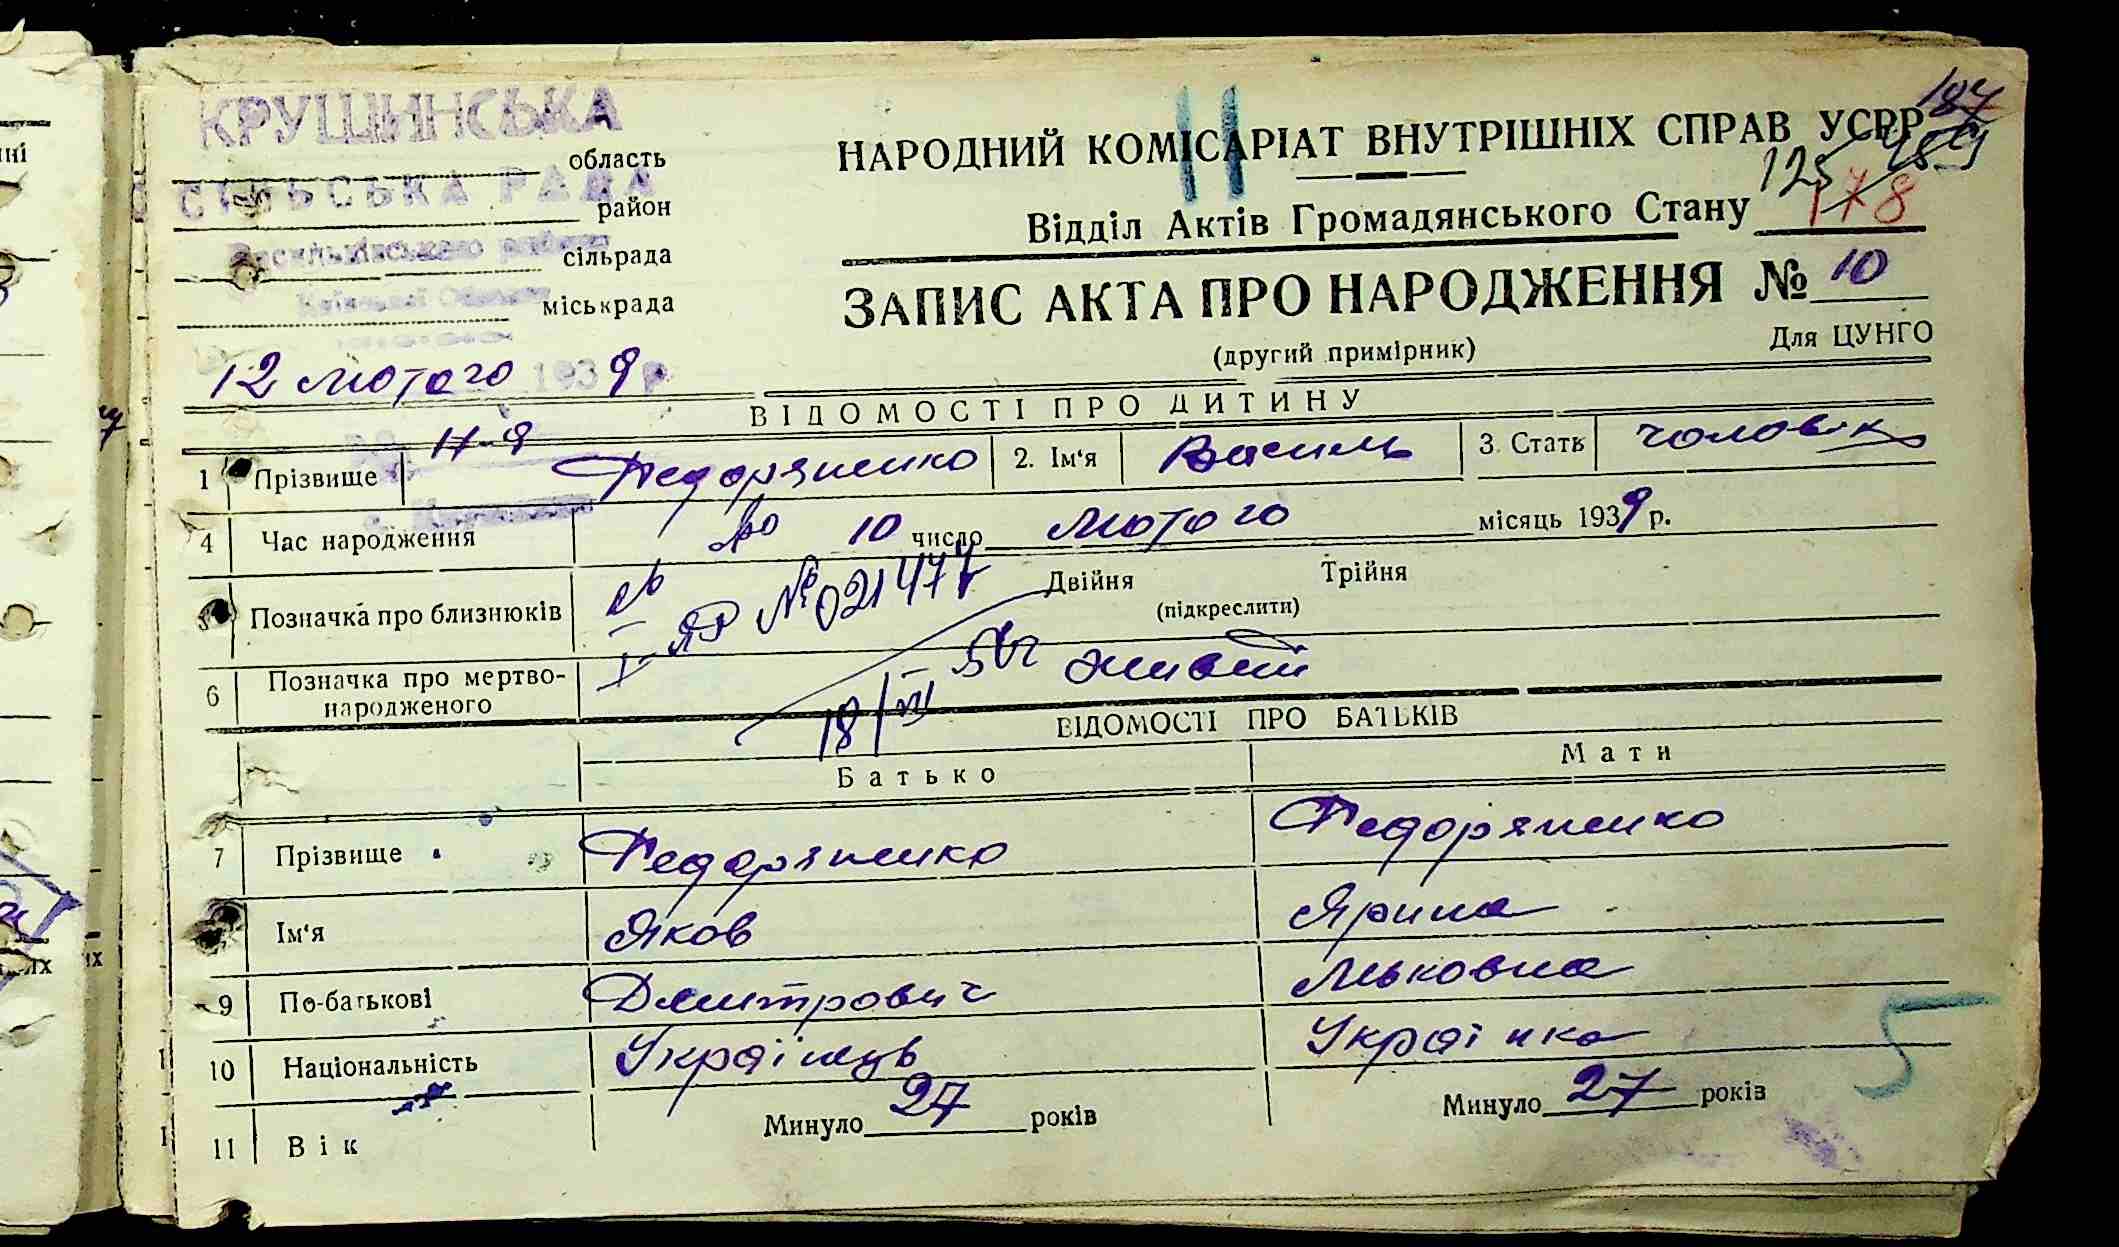 КРУШИНСЬКА
область
СІЛЬСЬКА РАДА
район
Васильківського району
сільрада
Київської Області
міськрада
12 лютого 1939 р.
187
НАРОДНИЙ КОМІСАРІАТ ВНУТРІШНІХ СПРАВ УСРР
11
125
Відділ Актів Громадянського Стану 178
ЗАПИС АКТА ПРО НАРОДЖЕННЯ № 10
(другий примірник)
Для ЦУНГО
ВІДОМОСТІ ПРО ДИТИНУ
1 Прізвище Федоряненко 2. Ім'я Василь 3. Стать чоловік
4 Час народження 10 число лютого місяць 1939 р.
5 Позначка про близнюків Двійня Трійня
(підкреслити)
№ 021477
6 Позначка про мертво-
народженого живий
18/VII
ВІДОМОСТІ ПРО БАТЬКІВ
Батько Мати
7 Прізвище Федоряненко Федоряненко
Ім'я Яков Ярина
9 По-батькові Дмитрович Льковна
10 Національність Українець Українка
11 Вік Минуло 27 років Минуло 27 років
5